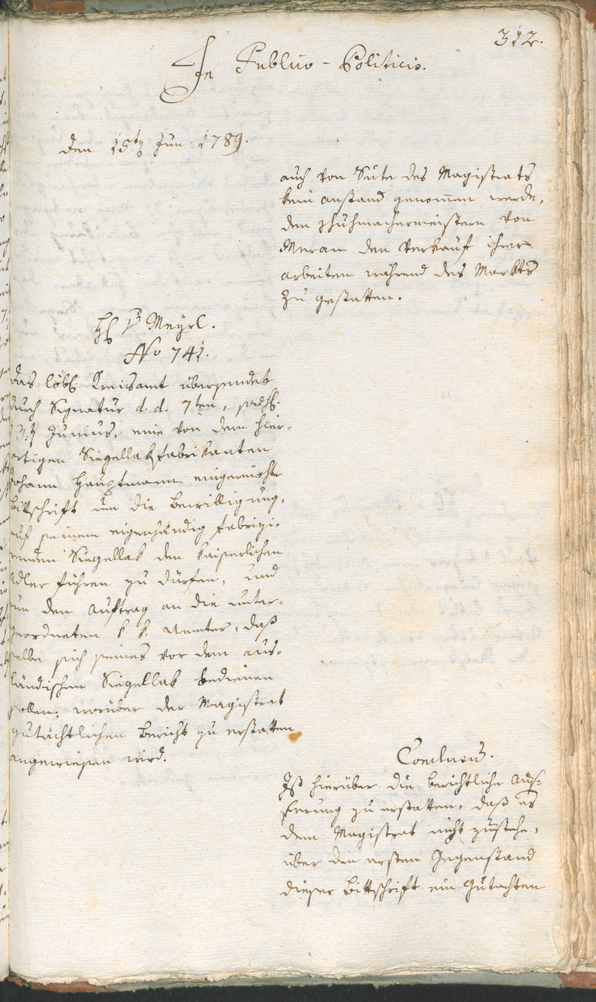 312.
In Publico-Politicis.
den 15t Jun 1789.
auch von Seite des Magistrats
kein anstand genommen werde,
den Schuhmachermeistern von
Meran den Verkauf ihrer
arbeiten während des Markts
zu gestatten.
H Meyrl.
No 741.
das löbl Kreisamt übersendet
durch Signatur d. d. 7ten,
Junius, eine von dem hier-
ortigen Siegellakfabrikanten
Johann Hauptmann eingereichte
Bittschrift um die Bewilligung,
auf seinem eigenhändig fabrizi-
renden Siegellak den kaiserlichen
Adler führen zu dürfen, und
um den Auftrag an die unter-
geordneten k k. Aemter, daß
selbe sich seines vor dem aus-
ländischen Siegellak bedienen
sollen, worüber der Magistrat
gutächtlichen Bericht zu erstatten
angewiesen wird.
Conclusum.
Ist hierüber die berichtliche Äuß-
erung zu erstatten, daß es
dem Magistrat nicht zustehe,
über den ersten Gegenstand
dieser Bittschrift ein Gutachten